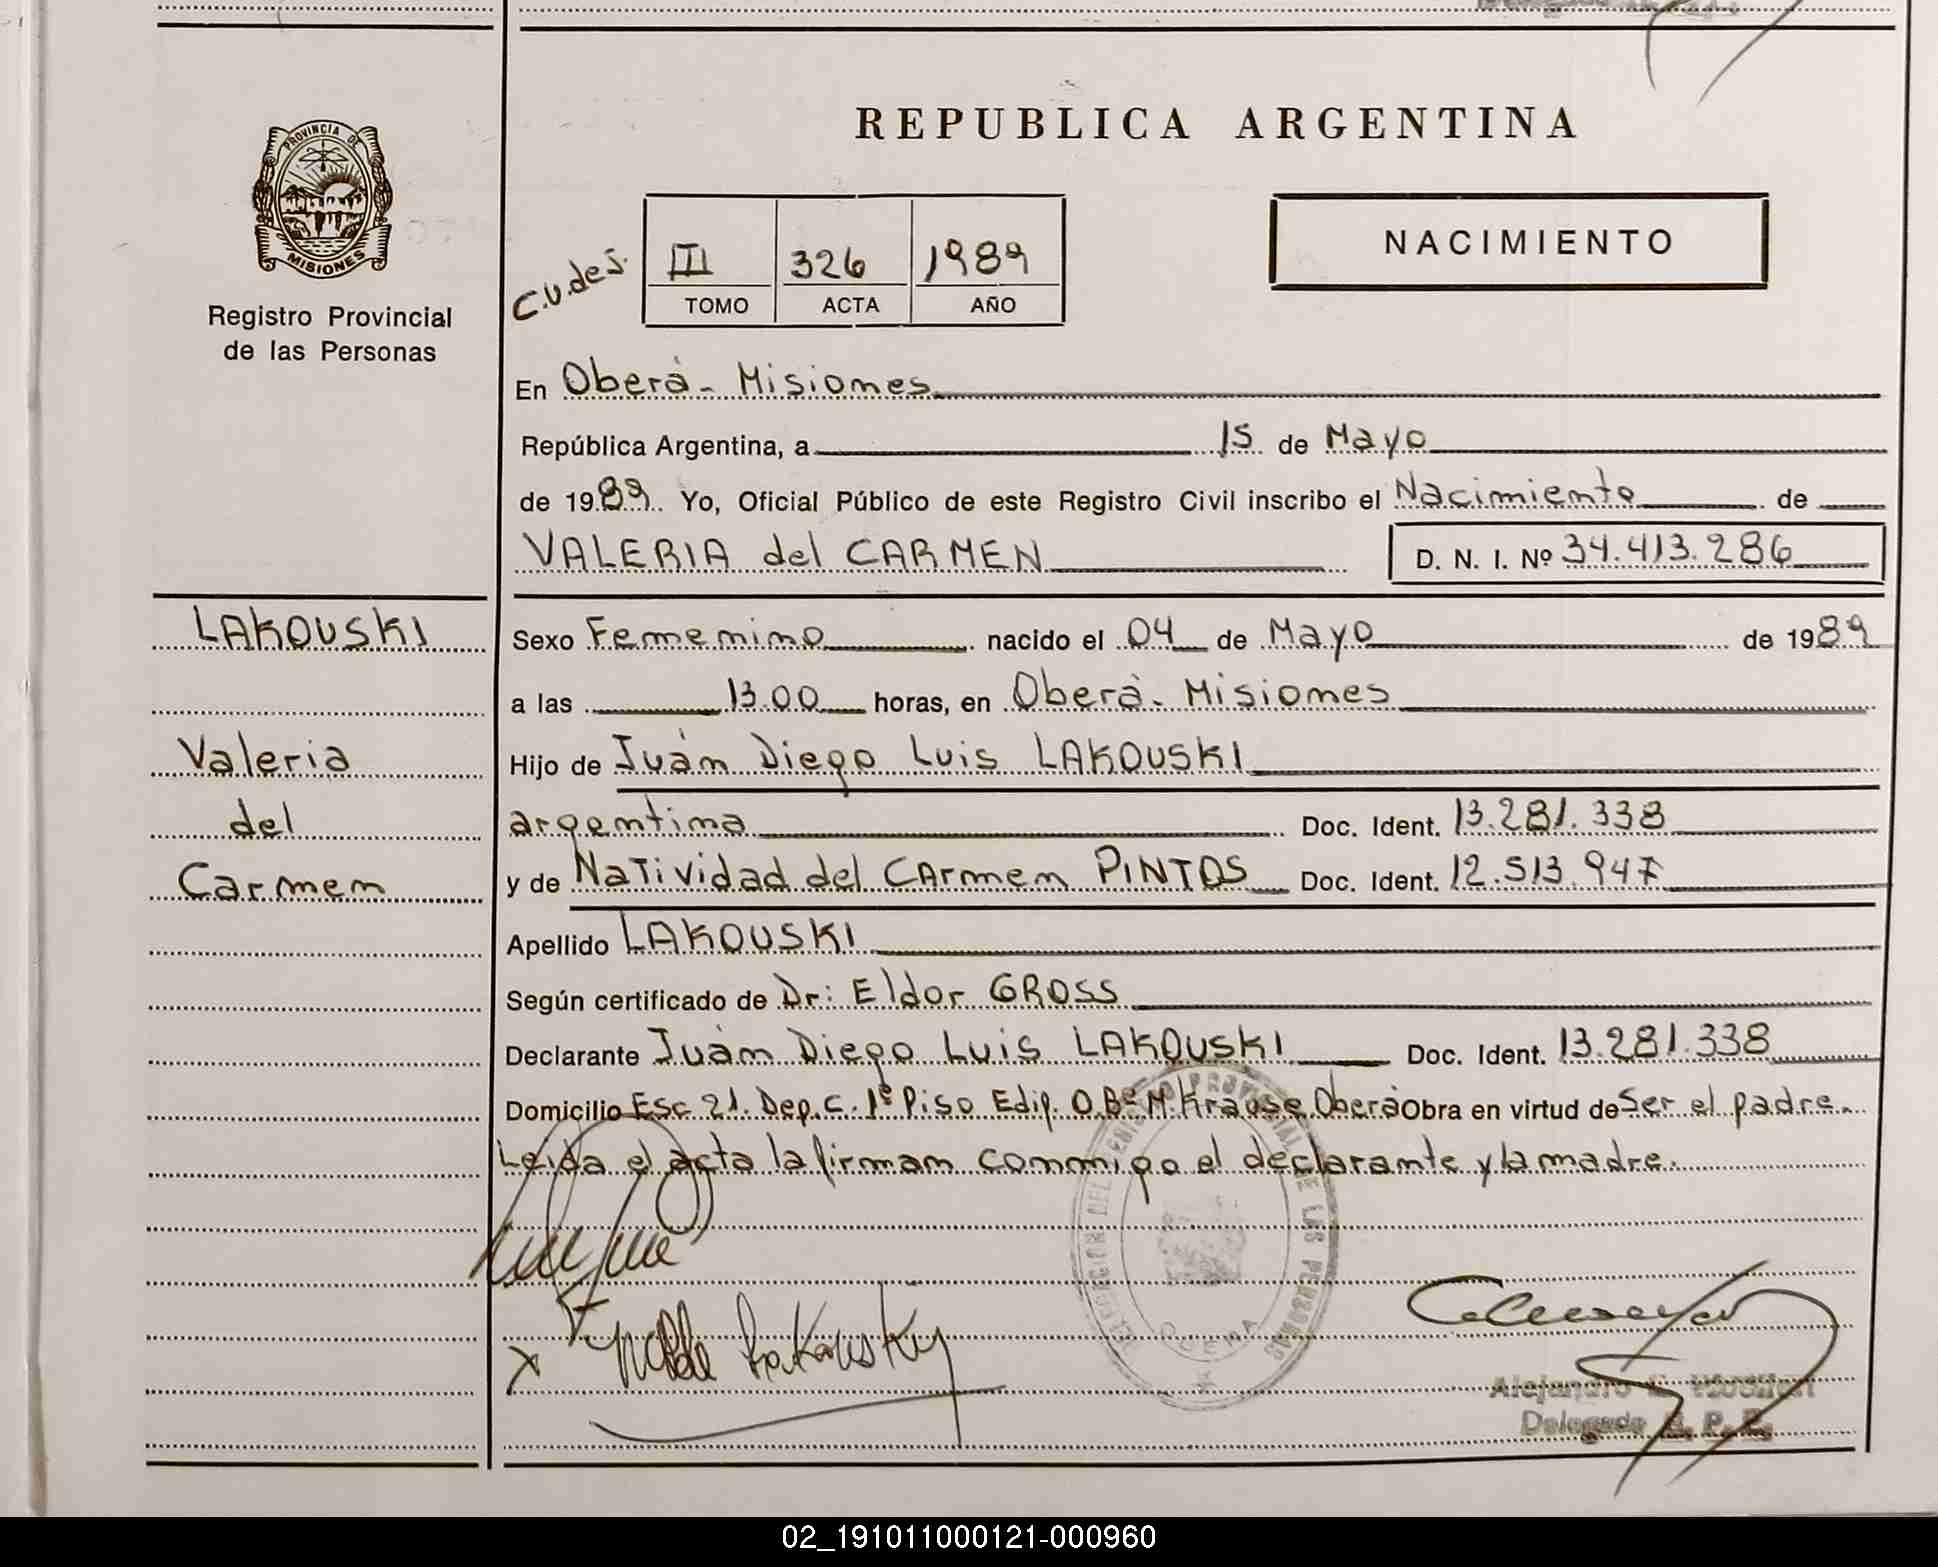 REPUBLICA ARGENTINA
PROVINCIA DE
MISIONES
Registro Provincial
de las Personas
C.U.des.
III 326 1989
TOMO ACTA AÑO
NACIMIENTO
En Oberà - Misiones
República Argentina, a 15 de Mayo
de 1989. Yo, Oficial Público de este Registro Civil inscribo el Nacimiento de
VALERIA del CARMEN D. N. I. Nº 34.413.286
LAKOUSKI
Valeria
del
Carmen
Sexo Femenino nacido el 04 de Mayo de 1989
a las 13.00 horas, en Oberà - Misiones
Hijo de Juàn Diego Luis LAKOUSKI
argentina Doc. Ident. 13.281.338
y de NaTividad del CArmen PINTOS Doc. Ident. 12.513.947
Apellido LAKOUSKI
Según certificado de Dr: Eldor GROSS
Declarante Juàn Diego Luis LAKOUSKI Doc. Ident. 13.281.338
Domicilio Esc 21. Dep. C. 1º Piso Edif. O. Bº M. Krause Oberà Obra en virtud de Ser el padre.
Leida el acta la firman conmigo el declarante y la madre.
DE LAS PERSONAS
Alejandro
Delegado R. P. P.
02_191011000121-000960